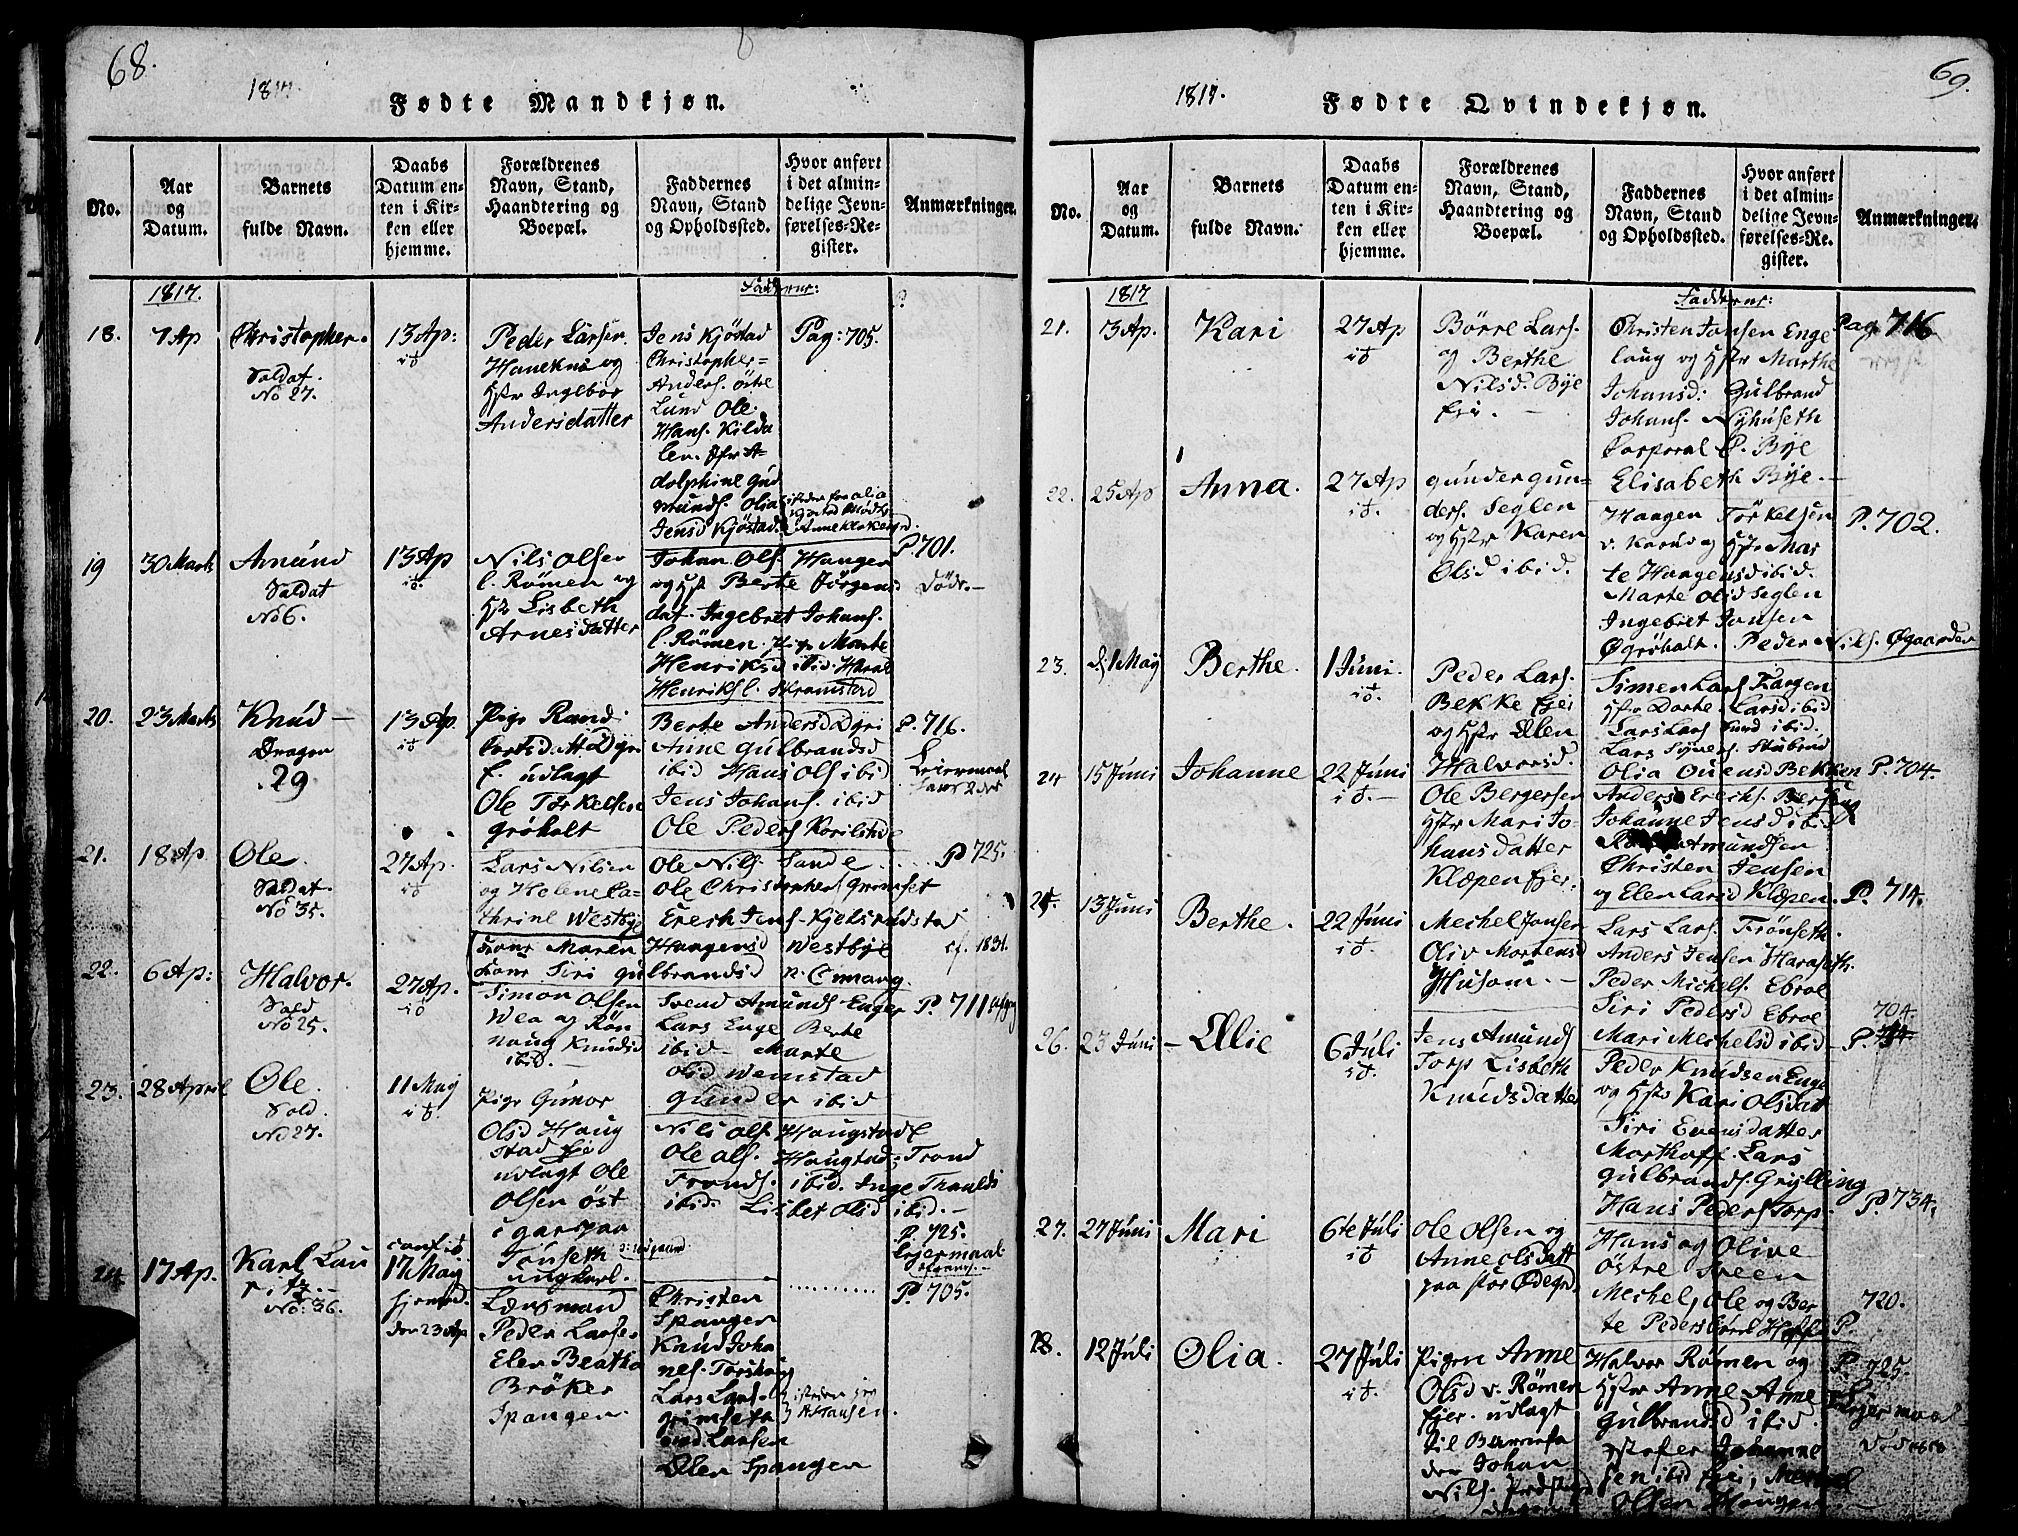 68.
1817.
Fødte Mandkjøn.
No.
Aar
og
Datum.
Barnets
fulde Navn.
Daabs
Datum en-
ten i Kir-
ken eller
hjemme.
Forældrenes
Navn, Stand,
Haandtering og
Boepæl.
Faddernes
Navn, Stand
og Opholdssted.
Hvor anført
i det almin-
delige Jevn-
førelses-Re-
gister.
Anmærkninger.
1817.
Faddere:
18.
7 Ap
Christopher.
Soldat.
No 27.
13 Ap:
Peder Larsen
og
Hstr Ingebor
Andersdatter
Jens Kjøstad
Christopher
Anders. Øste
Lund Ole
Hans. Kilda
len.
dolphine Gud
munds. Olia
Jensd Kjøstad
Pag: 705.
19
30 Marts
Amund
Soldat
No 6.
13 Ap
Nils Olsen
l. Römen og
Hstr Lisbeth
Arnesdatter
Johan Ols. Haugen
og Hst Berte Jörgens
dat. Ingebret Johans.
l. Römen. Pige Marte
Henriksd ibid. Haral
Henriks l. Skramstad
P. 701.
Døde.
20.
23 Marts
Knud
Dragon
29
13 Ap.
Pige Rand
udlagt
Ole Torkelsen
grøholt
Berte Andersd Dyri
Anne Gulbrandsd
ibid Hans Ols ibid
Jens Johans. ibid
Ole Peders Korilstad
P. 716.
Leiermaal
21.
18 Ap
Ole.
Soldat.
No 35.
27 Ap.
Lars Nilsen
og Helene Ca-
thrine Westbye
Ole Nils. Sande
Ole Christophers Grimset
Erech Jens. Kjelsrudstad
P 725.
Maren Haagensd Westbye
Siri Gulbrandsd n. Emrang.
cf. 1831.
22.
6 Ap:
Halvor.
Sold
No 25.
27 Ap.
Simon Olsen
Wea og Rön
naug Knudsd
ibid.
Svend Amunds Enger
Lars Enge Berte
ibid Marte
Olsd Wemstad
Gunder ibid
P. 711
23.
28 April
Ole.
Sold.
No 27.
11 May
Pige Gunor
Olsd Haug
stad
udlagt Ole
Olsen Öst
igarpaa
Tönseth
ungkarl.
Nils Ols Haugstad
Ole Ols. Haugstad: Trond
Tronds. ibid. Inge Thoralds
ibid. Lisbet Olsd ibid.
P. 725.
Lejermaal
24
17 Ap.
Karl Lau
ritz.
No: 36.
17 May
hjemed.
den 23 Ap
Lænsmand
Peder Larsen
Elen Beatha
Bröker
Spangen.
Christen
Spangen
Knud Joha
nes. Torskoug
Lars Lars.
Grimseth
Larsen
Elen Spangen
P. 705.
69.
1817.
Fødte Qvindekjøn.
No.
Aar
og
Datum.
Barnets
fulde Navn.
Daabs
Datum en-
ten i Kir-
ken eller
hjemme.
Forældrenes
Navn, Stand,
Haandtering og
Boepæl.
Faddernes
Navn, Stand
og Opholdssted.
Hvor anført
i det almin-
delige Jevn-
førelses-Re-
gister.
Anmærkninger.
1817
Faddere:
21.
3 Ap.
Kari
27 Ap
Börre Lars.
og Berthe
Nilsd. Bye
Christen Jonsen Enge
laug og Hstr Marthe
Johansd: Gulbrand
Johans. Nyhuseth
Corporal P. Bye
Elisabeth Bye.
Pag 716
22.
25 Ap
Anna.
27 Ap
Gunder Gun-
ders. Seglen
og Hstr Karen
Olsd ibid.
Haagen Torkelsen
v. Karud og Hstr Mar
te Haagensd ibid.
Marte Olsd Seglen
Ingebret Jonsen
Øgröholt. Peder Nils. Øgaarden
P. 702.
23.
1 May
Berthe.
1 Juni.
Peder Lars.
Bekke Eje
og Hstr Elen
Halvorsd.
Simen Lars Haugen
Hstr Dorte Larsd ibid
Lars Lars Lund ibid.
Lars Syvers. Stubrud
Olia Ouensd Bekken
P. 704.
24
15 Juni
Johanne
22 Juni
Ole Bergersen
Hstr Mari Jo-
hansdatter
Klöpen Ejer.
Anders Erichs. Berseng
Johanne Jensd ibid
Amundsen
Christen Jensen
og Elen Larsd Klöpen.
P. 714.
25.
13 Juni
Berthe.
22 Juni
Mechel Jonsen
Oliv Mortensd
Husom.
Lars Lars. Frönseth.
Anders Jensen Haraseth.
Peder Michels. Ebroe
Siri Pedersd Ebroe
Mari Mechelsd ibid
704.
26.
23 Juni
Ellie
6 Juli
Jens Amunds
Torp Lisbeth
Knudsdatter
Peder Knudsen Enge
og Hstr Kari Olsdatt
Siri Evensdatter
Morthoff Lars
Gulbrands. Grylling
Hans Peders Torp.
P. 734.
27.
27 Juni
Mari
6te Juli
Ole Olsen og
Anne Olsdatt
paa stor Ødegrd
Hans og Olive
Östre Sveen
Mechel, Ole og Ber
te Peders
720.
P.
28.
12 Juli
Olia.
27 Juli
Pigen Anne
Olsd v. Römen
Ejer. udlagt
til Barnefa
der Johan
Nils.
Halvor Römen og
Hstr Anne, Anne
Gulbrandsd ibid.
Johanne
ibid Eje, Mechel
Olsen Haugen
P. 725.
Lejermaal